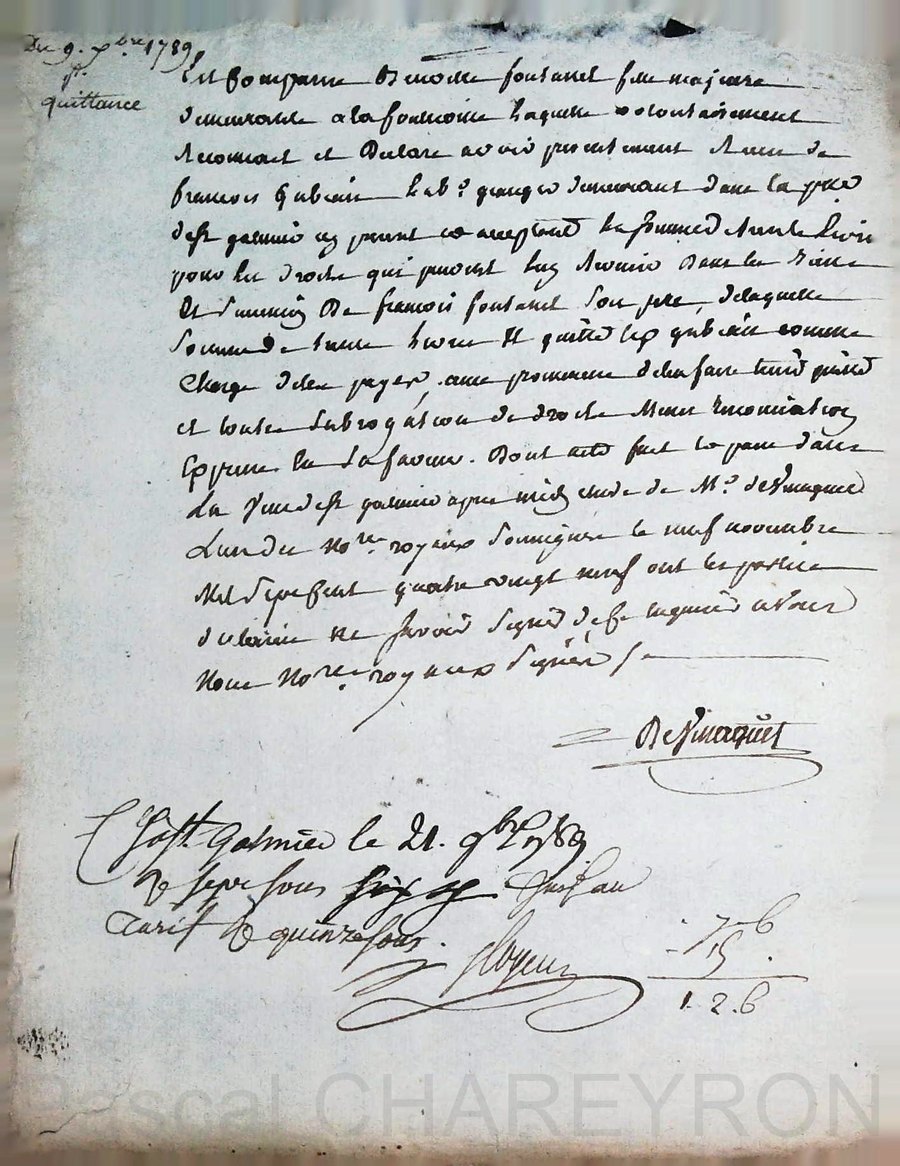 Du 9. 9bre 1789
quittance
Est Comparue Benoite fontanel fille majeure
demeurante a la fouillouse laquelle volontairement
Reconnait et Declare avoir presentement Recu de
françois demeurant dans la psse
de st galmier cy present et acceptant la somme de trente livres
pour les droits qui peuvent luy Revenir Dans les
Et succession De françois fontanel Son pere, de laquelle
somme de trente livres Elle quitte led comme
Charge de la payer. avec promesse de l'en faire tenir quitte
et toutes subrogation de droits Renonciation
En sa faveur. Dont acte fait et passé
La ville de st galmier apres midy etude de Me. deVinaquet
L'un des Nores. royaux soussignés le neuf novembre
Mil sept cent quatre vingt neuf ont les parties
declarée Ne savoir signer de ce
Nore. royaux signés /.
DeVinaquet
à st. Galmier le 21. 9bre 1789
R sept sous six suivt au
tarif R quinze sous.
7 6
15 .
1. 2. 6
Pascal CHAREYRON